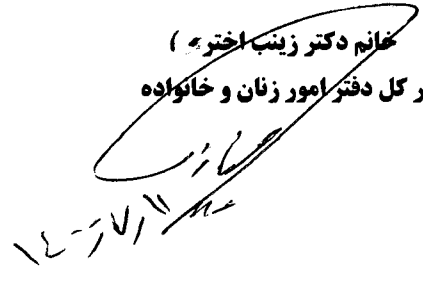 خانم دکتر زینب اختری )
ر کل دفتر امور زنان و خانواده
۱۴۰۰/۷/۱۱